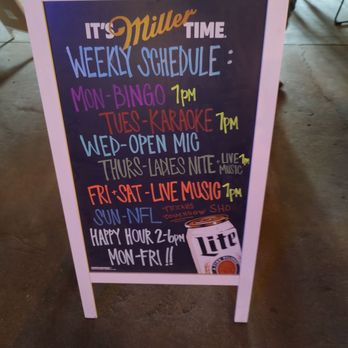 IT'S Miller TIME.
WEEKLY SCHEDULE:
MON-BINGO 7pm
TUES-KARAOKE 7pm
WED-OPEN MIC
THURS-LADIES NITE + LIVE MUSIC 7pm
FRI + SAT-LIVE MUSIC 7pm
SUN-NFL
HAPPY HOUR 2-6pm
MON-FRI!!
Lite